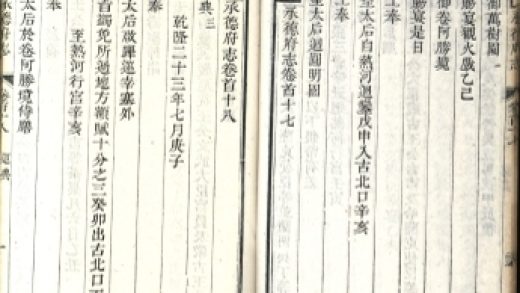 御萬樹園
賜宴觀火戲乙巳
御卷阿勝境
賜宴是日
上奉
皇太后自熱河迴鑾戊申入古北口辛亥
皇太后迴圓明園
承德府志卷首十七
承德府志卷首十八
典三
乾隆二十三年七月庚子
皇太后啟蹕巡幸塞外
旨蠲免所過地方額賦十分之三癸卯出古北口
至熱河行宮辛亥
上奉
太后於卷阿勝境侍膳
承德府志